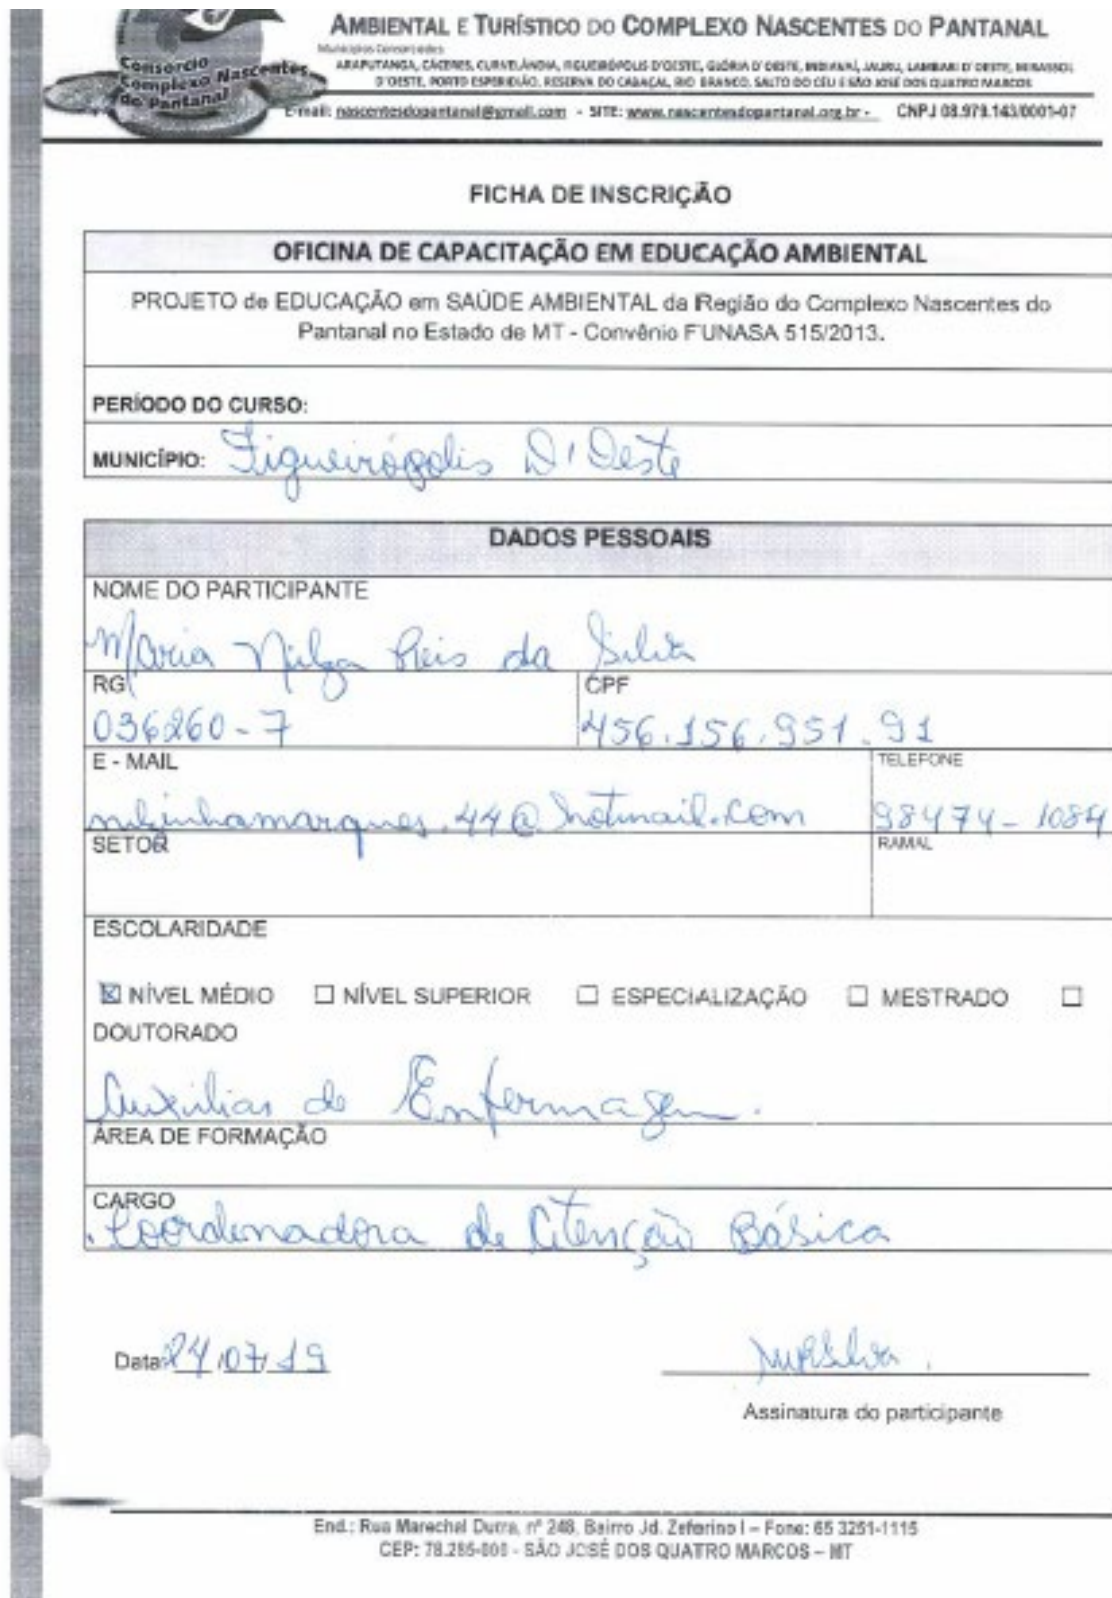 AMBIENTAL E TURÍSTICO DO COMPLEXO NASCENTES DO PANTANAL
Municípios Consorciados
ARAPUTANGA, CÁCERES, CURVELÂNDIA, FIGUEIRÓPOLIS D'OESTE, GLÓRIA D'OESTE, INDIAVAÍ, JAURU, LAMBARI D'OESTE, MIRASSOL
D'OESTE, PORTO ESPERIDIÃO, RESERVA DO CABAÇAL, RIO BRANCO, SALTO DO CÉU E SÃO JOSÉ DOS QUATRO MARCOS
Consórcio
Complexo Nascentes
do Pantanal
E-mail: nascentesdopantanal@gmail.com - SITE: www.nascentesdopantanal.org.br - CNPJ 08.979.143/0001-07
FICHA DE INSCRIÇÃO
OFICINA DE CAPACITAÇÃO EM EDUCAÇÃO AMBIENTAL
PROJETO de EDUCAÇÃO em SAÚDE AMBIENTAL da Região do Complexo Nascentes do
Pantanal no Estado de MT - Convênio FUNASA 515/2013.
PERÍODO DO CURSO:
MUNICÍPIO: Figueirópolis D'Oeste
DADOS PESSOAIS
NOME DO PARTICIPANTE
Maria Nilza Reis da Silva
RG CPF
036260-7 456.156.951.91
E - MAIL TELEFONE
nilzinhamarques.44@hotmail.com 98474-1084
SETOR RAMAL
ESCOLARIDADE
☒ NÍVEL MÉDIO ☐ NÍVEL SUPERIOR ☐ ESPECIALIZAÇÃO ☐ MESTRADO ☐
DOUTORADO
Auxiliar de Enfermagem.
ÁREA DE FORMAÇÃO
CARGO
Coordenadora de Atenção Básica
Data: 24/07/19
Assinatura do participante
End.: Rua Marechal Dutra, nº 248, Bairro Jd. Zeferino I – Fone: 65 3251-1115
CEP: 78.285-000 - SÃO JOSÉ DOS QUATRO MARCOS – MT